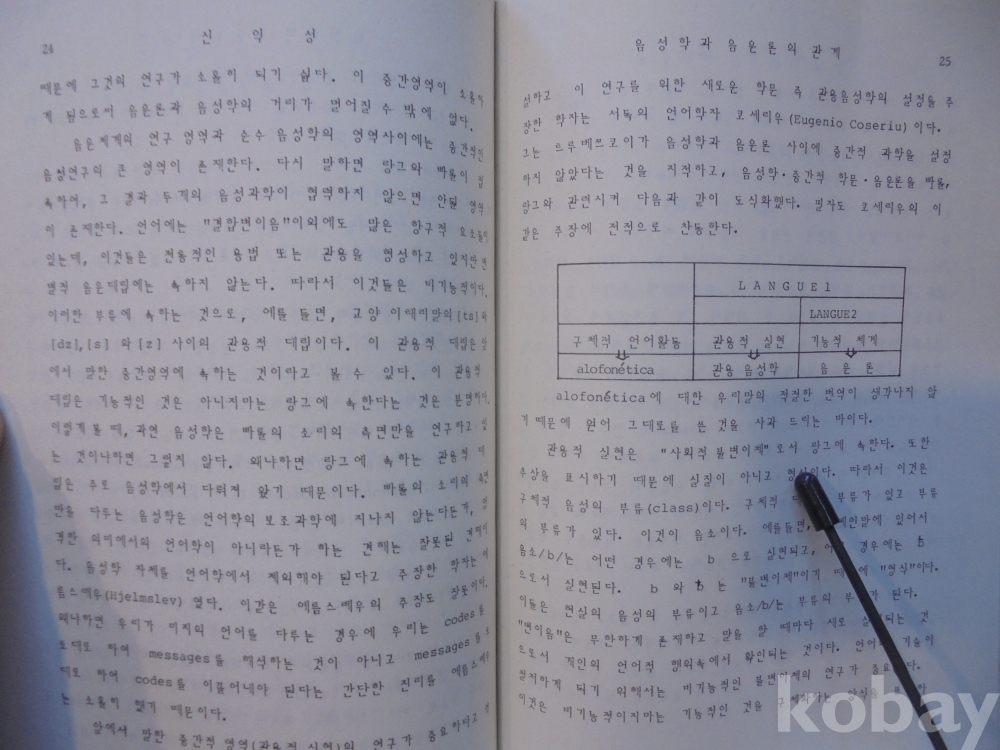 24
신 익 성
때문에 그것의 연구가 소홀히 되기 쉽다. 이 중간영역이 소홀하
게 됨으로써 음운론과 음성학의 거리가 멀어질 수 밖에 없다.
음운체계의 연구 영역과 순수 음성학의 영역사이에는 중간적인
음성연구의 큰 영역이 존재한다. 다시 말하면 랑그와 빠롤이 접
속하여, 그 결과 두개의 음성과학이 협력하지 않으면 안될 영역
이 존재한다. 언어에는 "결합변이음"이외에도 많은 항구적 요소들이
있는데, 이것들은 전통적인 용법 또는 관용을 형성하고 있지만 변
별적 음운대립에는 속하지 않는다. 따라서 이것들은 비기능적이다.
이러한 부류에 속하는 것으로, 예를 들면, 고양 이태리말의 [ts]와
[dz], [s] 와 [z] 사이의 관용적 대립이다. 이 관용적 대립은 앞
에서 말한 중간영역에 속하는 것이라고 볼 수 있다. 이 관용적
대립은 기능적인 것은 아니지마는 랑그에 속한다는 것은 분명하다.
이렇게 볼 때, 과연 음성학은 빠롤의 소리의 측면만을 연구하고 있
는 것이냐하면 그렇지 않다. 왜냐하면 랑그에 속하는 관용적 대
립은 주로 음성학에서 다뤄져 왔기 때문이다. 빠롤의 소리의 측면
만을 다루는 음성학은 언어학의 보조과학에 지나지 않는다든가, 엄
격한 의미에서의 언어학이 아니라든가 하는 견해는 잘못된 견해이
다. 음성학 자체를 언어학에서 제외해야 된다고 주장한 학자는 예
름스레우(Hjelmslev) 였다. 이같은 예름스레우의 주장도 잘못이다.
왜냐하면 우리가 미지의 언어를 다루는 경우에 우리는 codes를
토대로 하여 messages를 해석하는 것이 아니고 messages를 토
대로 하여 codes를 이룰어내야 된다는 간단한 진리를 예름스레우
는 소홀히 했기 때문이다.
앞에서 말한 중간적 영역(관용적 실현)의 연구가 중요하다고
음성학과 음운론의 관계
25
설하고 이 연구를 위한 새로운 학문 즉 관용음성학의 설정을 주
장한 학자는 서독의 언어학자 코세리우(Eugenio Coseriu)이다.
그는 뜨루베쯔코이가 음성학과 음운론 사이에 중간적 과학을 설정
하지 않았다는 것을 지적하고, 음성학·중간적 학문·음운론을 빠롤,
랑그와 관련시켜 다음과 같이 도식화했다. 필자도 코세리우의 이
같은 주장에 전적으로 찬동한다.
LANGUE1
LANGUE2
구체적 언어활동 관용적 실현 기능적 체계
alofonética 관용 음성학 음 운 론
alofonética에 대한 우리말의 적절한 번역이 생각나지 않
기 때문에 원어 그대로를 쓴 것을 사과 드리는 바이다.
관용적 실현은 "사회적 불변이체"로서 랑그에 속한다. 또한
추상을 표시하기 때문에 실질이 아니고 형식이다. 따라서 이것은
구체적 음성의 부류(class)이다. 구체적 부류가 있고 부류
의 부류가 있다. 이것이 음소이다. 예를들면, 있어서
음소/b/는 어떤 경우에는 b 으로 실현되고, 경우에는 ƀ
으로서 실현된다. b 와 ƀ 는 "불변이체"이기 때문에 "형식"이다.
이들은 현실의 음성의 부류이고 음소/b/는 부류의 부류가 된다.
"변이음"은 무한하게 존재하고 말을 할 때마다 새로 것
으로서 개인의 언어적 행위속에서 확인되는 것이다. 언어의 기술이
철저하게 되기 위해서는 비기능적인 불변이체의 연구가 중요하다.
이것은 비기능적이지마는 기능적인 것을
kobay